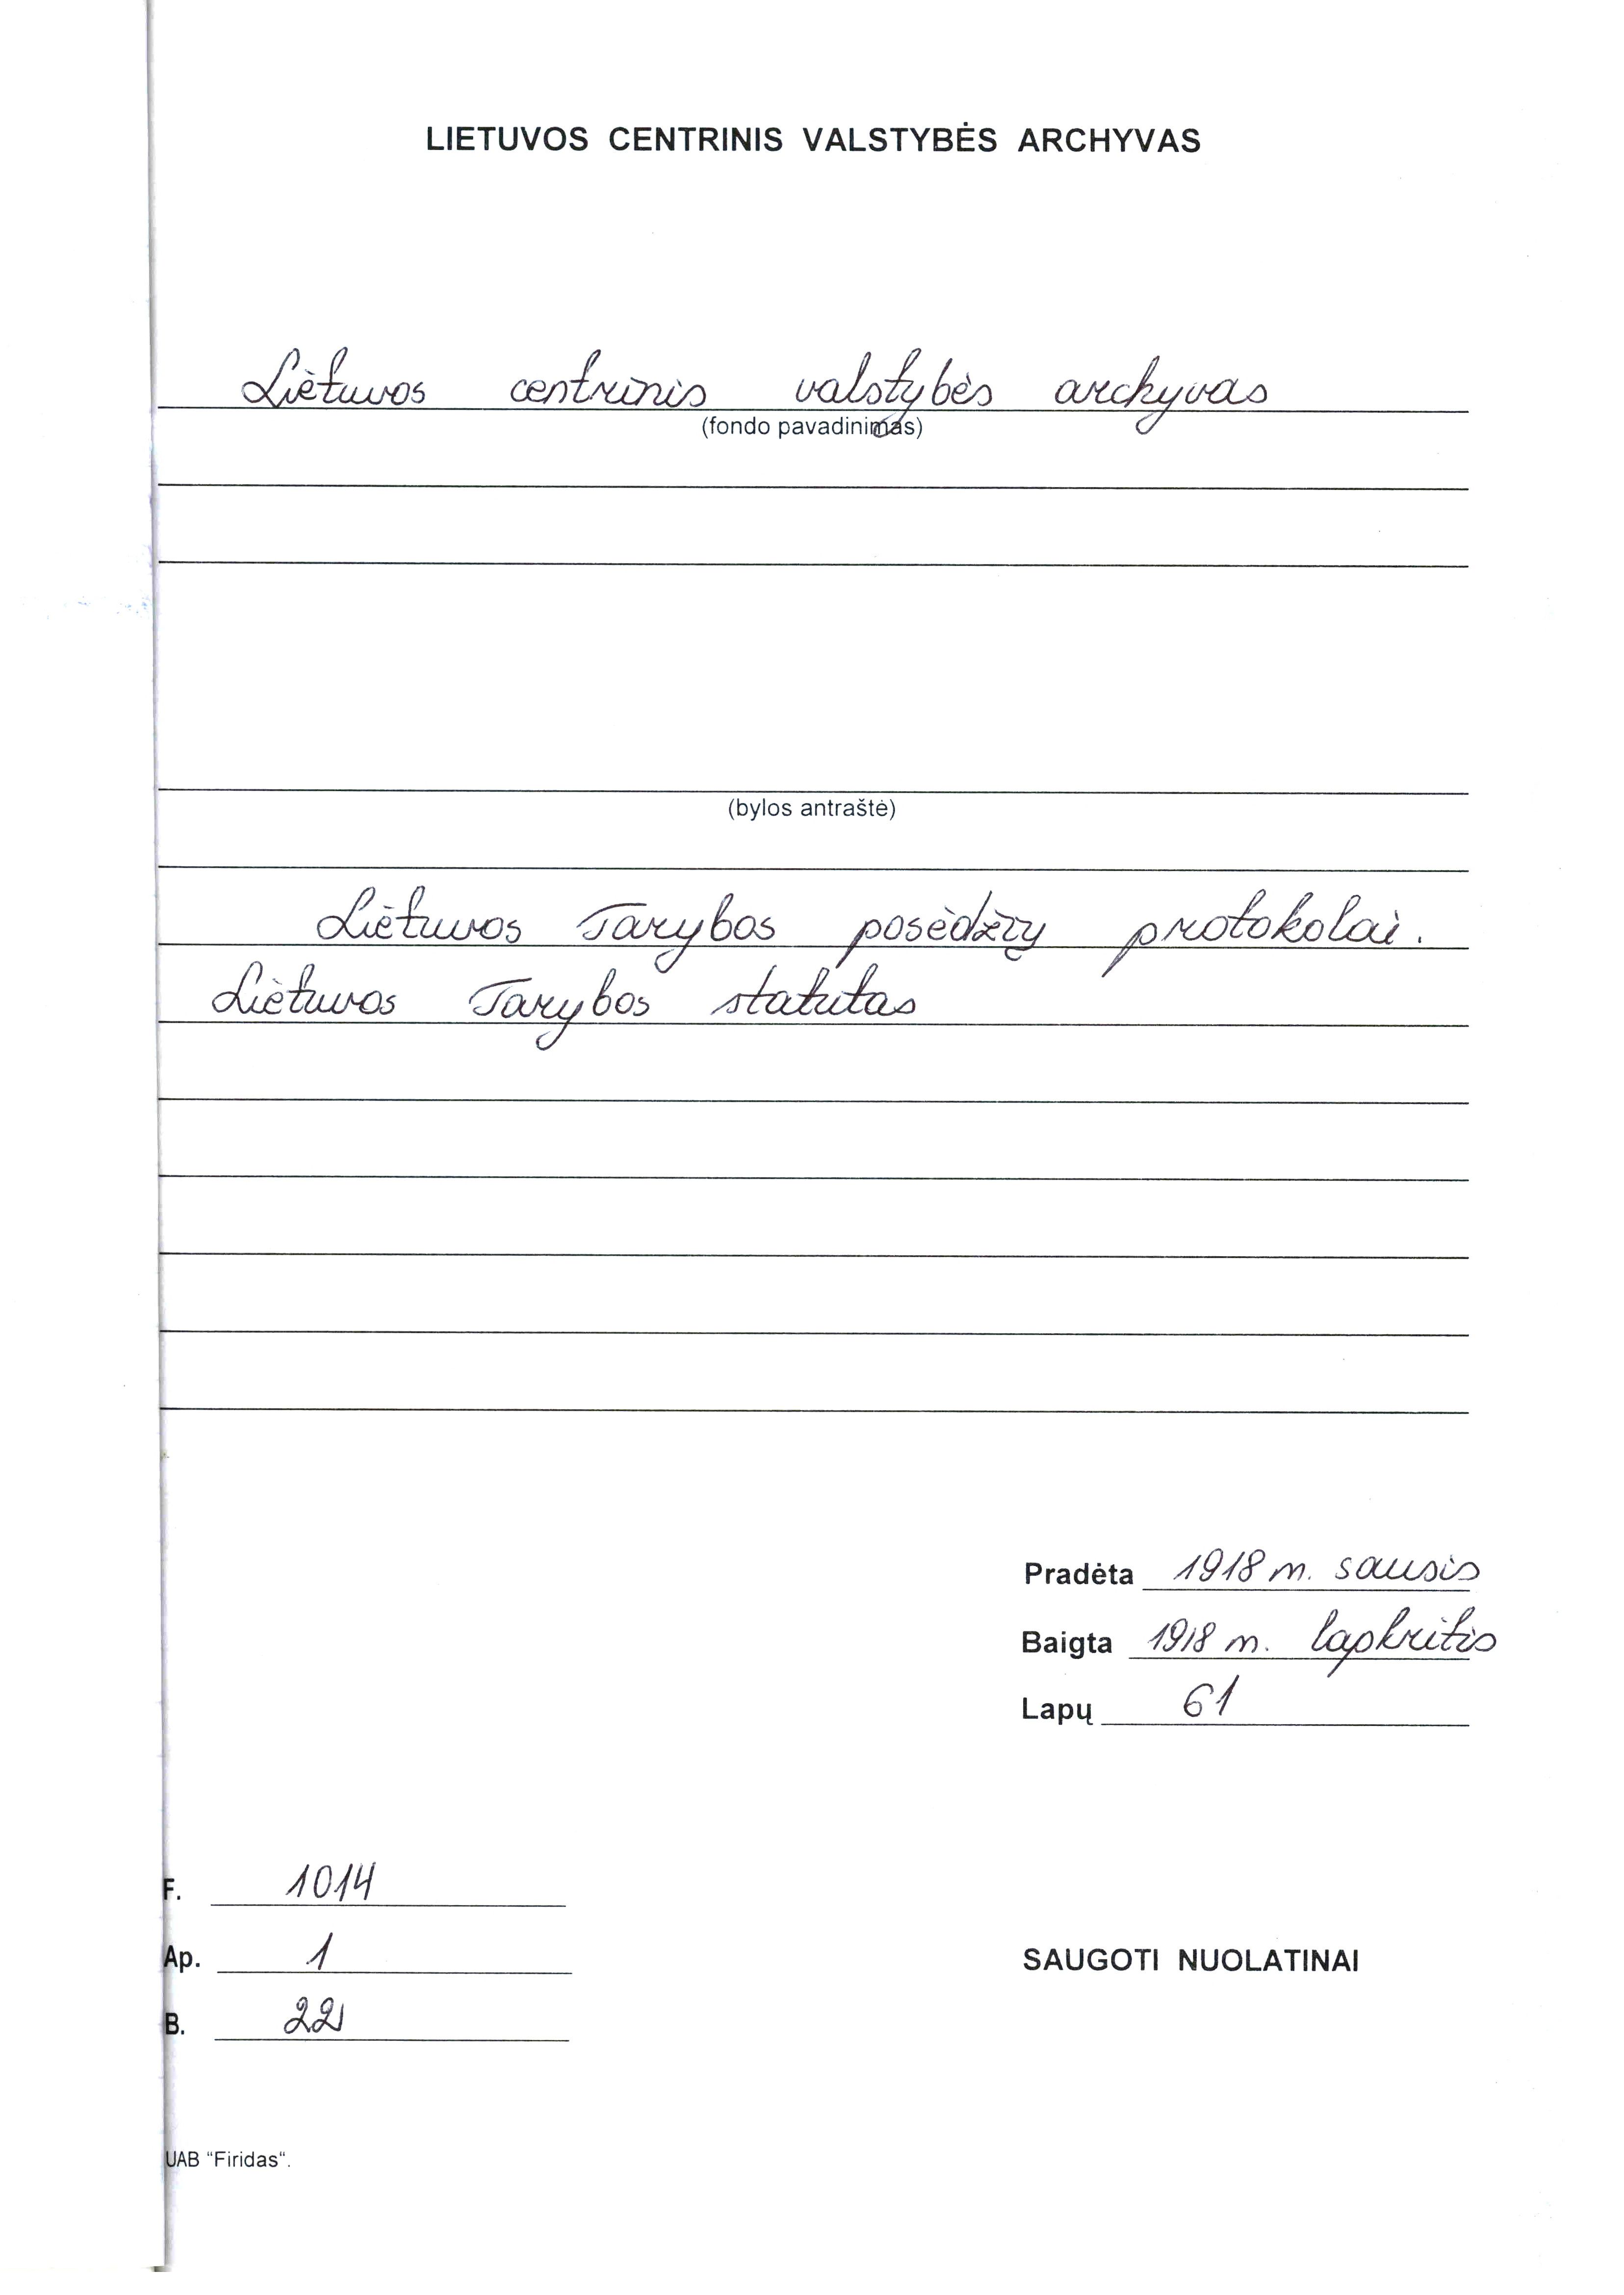 LIETUVOS CENTRINIS VALSTYBĖS ARCHYVAS
Lietuvos centrinis valstybės archyvas
(fondo pavadinimas)
(bylos antraštė)
Lietuvos Tarybos posėdžių protokolai.
Lietuvos Tarybos statutas
Pradėta 1918 m. sausis
Baigta 1918 m. lapkritis
Lapų 61
F. 1014
Ap. 1
SAUGOTI NUOLATINAI
B. 22
UAB “Firidas“.